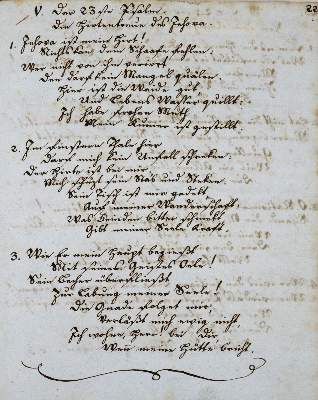 V. Der 23ste Psalm.
Die Hirtentreue des Jehova.
22
1. Jehova ist mein Hirt!
Nichts kan dem Schaafe fehlen.
Wer nicht von ihm verirrt
Den darf kein Mangel quälen.
Hier ist die Weide gut,
Und Lebens Wasser quillt:
Ich habe frohen Muth
Mein Kummer ist gestillt.
2. Im finstern Thale hier
Darf mich kein Unfall schrecken.
Der Hirte ist bei mir
Mich schüzt sein Stab und Steken.
Sein Tisch ist mir gedekt
Auf meiner Wanderschaft,
Was Feinden bitter schmekt
Gibt meiner Seele Kraft.
3. Wie Er mein Haupt begießt
Mit seines Geistes Oele!
Sein Becher überfließt
Zur Labung meiner Seele!
Die Gnade folget mir,
Verläßt mich ewig nicht,
Ich wohne, Herr! bei Dir,
Wenn meine Hütte bricht.